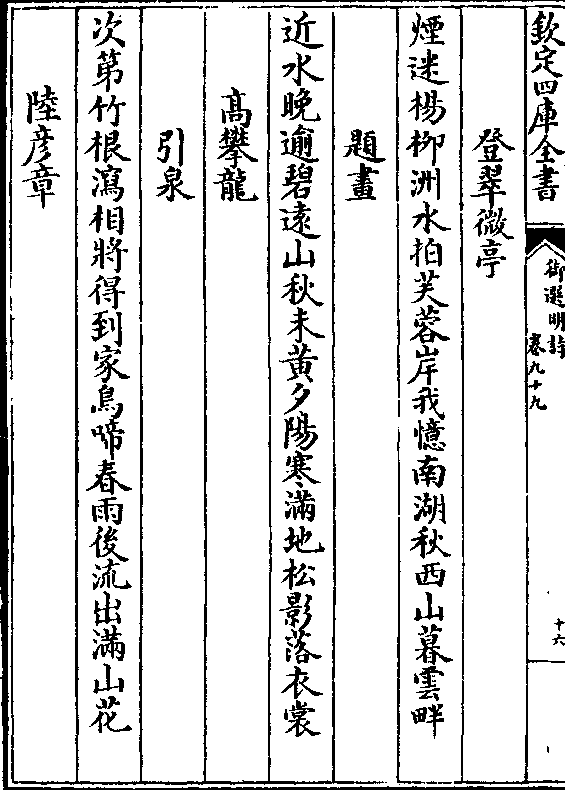 欽定四庫全書
御選明詩
卷九十九
十六
登翠微亭
煙迷楊柳洲水拍芙蓉岸我憶南湖秋西山暮雲畔
題畫
近水晚逾碧遠山秋未黃夕陽寒滿地松影落衣裳
高攀龍
引泉
次第竹根瀉相將得到家鳥啼春雨後流出滿山花
陸彥章